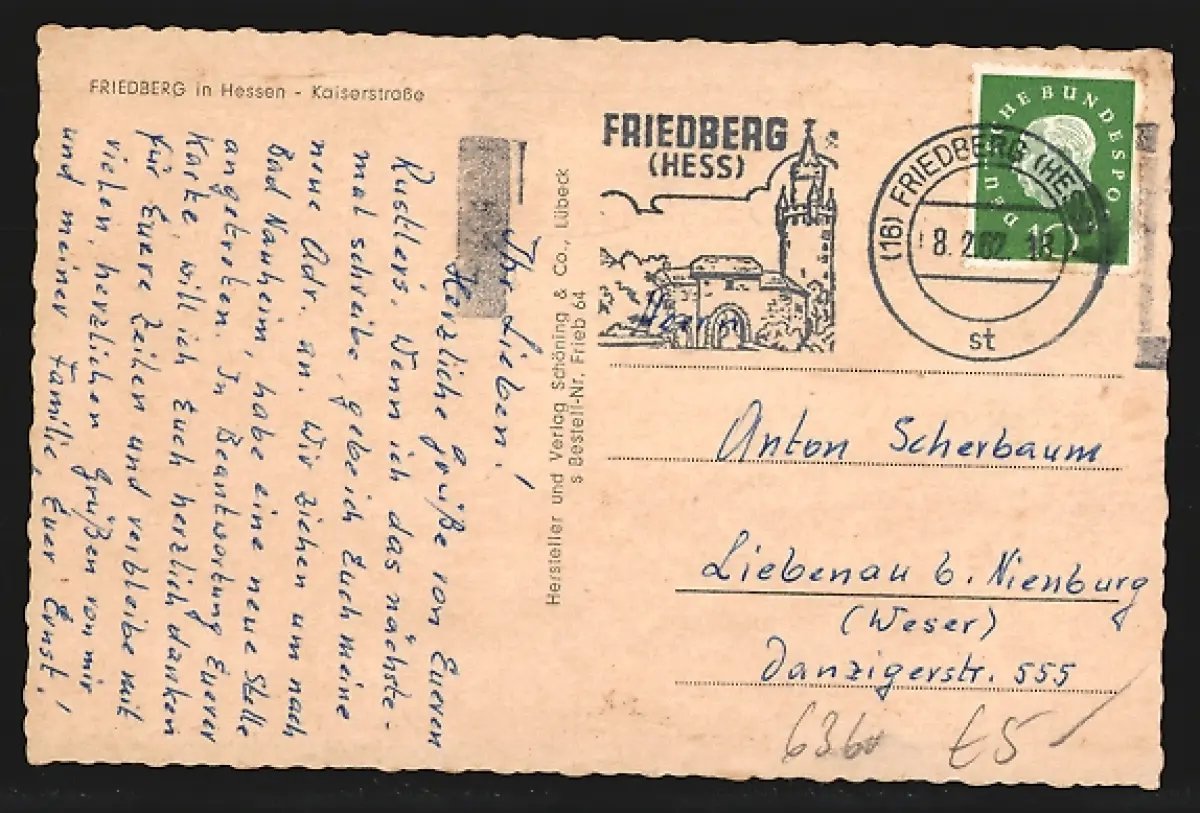 FRIEDBERG in Hessen - Kaiserstraße
Ihr Lieben!
Herzliche Grüße von Eueren
Rustlers. Wenn ich das nächste-
mal schreibe, gebe ich Euch meine
neue Adr. an. Wir ziehen um nach
Bad Nauheim, habe eine neue Stelle
angetreten. In Beantwortung Euerer
Karte, will ich Euch herzlich danken
für Euere Zeilen und verbleibe mit
vielen, herzlichen Grüßen von mir
und meiner Familie, Euer Ernst.
Hersteller und Verlag Schöning & Co., Lübeck
s Bestell-Nr. Frieb 64
FRIEDBERG
(HESS)
DEUTSCHE BUNDESPOST
10
(16) FRIEDBERG (HESS)
8.2.62. 18
st
Herrn
Anton Scherbaum
Liebenau b. Nienburg
(Weser)
Danzigerstr. 555
636
£5